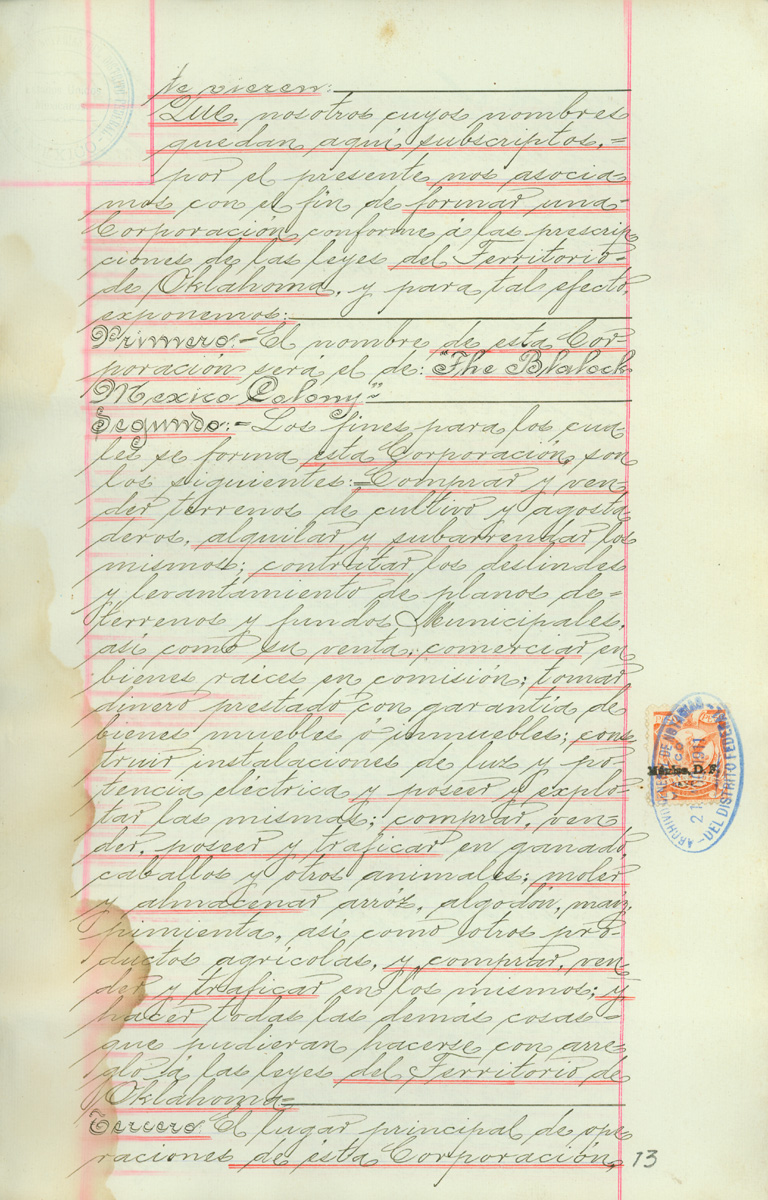 te vieren:
Que, nosotros cuyos nombres
quedan aquí subscriptos,=
por el presente nos asocia
mos con el fin de formar una-
Corporación conforme á las prescrip
ciones de las leyes del Territorio-
de Oklahoma, y para tal efecto,
exponemos:
Primero:-El nombre de esta Cor-
poración será el de: "The Blalock
Mexico Colony"=
Segundo:-Los fines para los cua-
les se forma esta Corporación, son
los siguientes:=Comprar y ven-
der terrenos de cultivo y agosta
deros, alquilar y subarrendar los
mismos; contratar los deslindes
y levantamiento de planos de=
terrenos y fundos Municipales,
así como su venta; comerciar en
bienes raices en comisión; tomar
dinero prestado con garantía de
bienes muebles ó inmuebles; cons
truir instalaciones de luz y po-
tencia eléctrica y poseer y explo-
tar las mismas; comprar, ven
der, poseer y traficar en ganado,
caballos y otros animales; moler
y almacenar arróz, algodón, maíz,
pimienta, así como otros pro-
ductos agrícolas, y comprar, ven
der y traficar en los mismos; y
hacer todas las demás cosas=
que pudieran hacerse con arre
glo á las leyes del Territorio de
Oklahoma=
Tercero: El lugar principal de ope
raciones de ésta Corporación,
13
México, D. F.
DEL DISTRITO FEDERAL